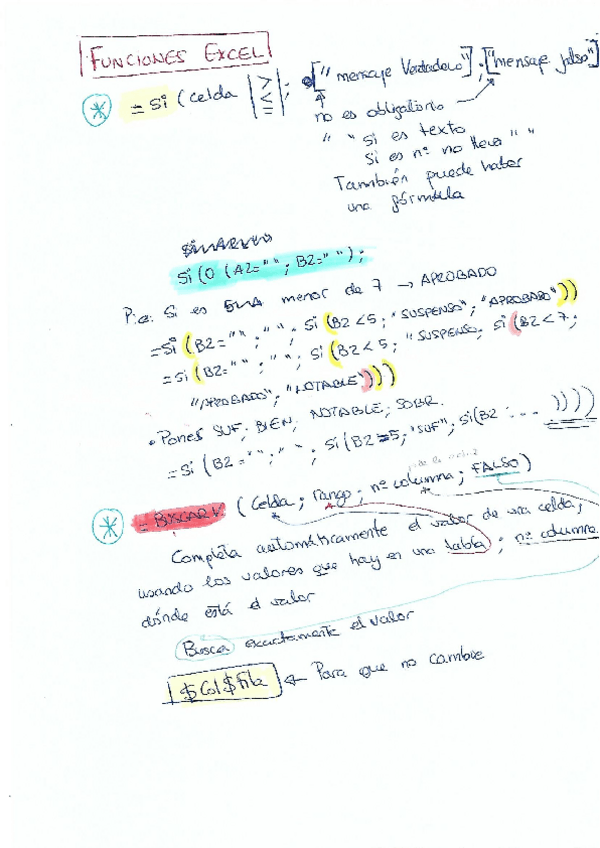 FUNCIONES EXCEL
= Si (celda | > < = | ; ["mensaje Verdadero"] ; ["mensaje falso"]
no es obligatorio
" " si es texto
Si es nº no lleva " "
También puede haber
una fórmula
Si (O (A2=" " ; B2=" " );
P.e: Si es menor de 7 → APROBADO
=Si (B2=" " ; " " ; Si (B2<5 ; "SUSPENSO" ; "APROBADO")))
=Si (B2=" " ; " " ; Si (B2<5 ; "SUSPENSO; Si (B2<7;
"APROBADO"; "NOTABLE"))))
• Pones SUF; BIEN; NOTABLE; SOBR.
=Si (B2=" " ; " " ; Si (B2=5; "SUF"; Si(B2 : ... ))))
= BUSCARV (celda ; rango ; nº columna ; FALSO)
Completa automáticamente el valor de una celda,
usando los valores que hay en una tabla ; nº columna
dónde está el valor
Busca exactamente el valor
$Col$Fila ← Para que no cambie